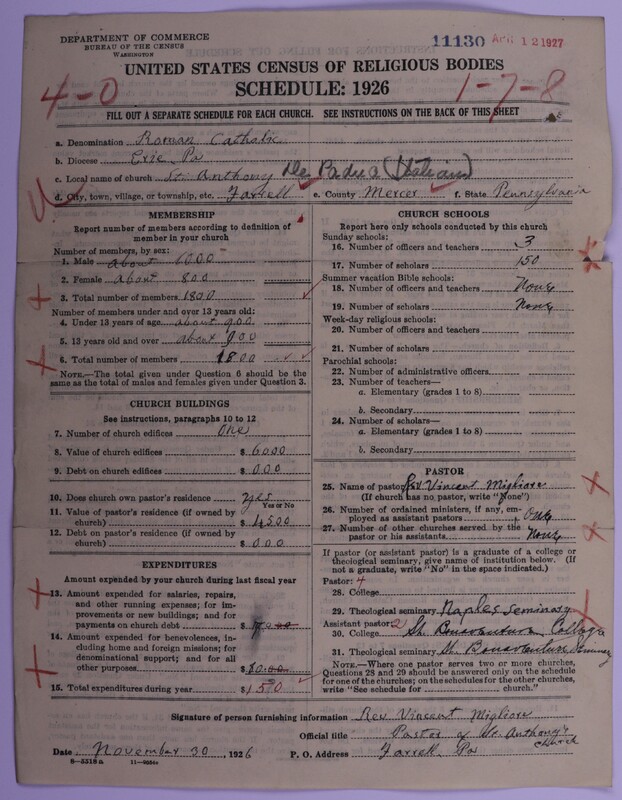 DEPARTMENT OF COMMERCE
BUREAU OF THE CENSUS
WASHINGTON
11130 APR 12 1927
UNITED STATES CENSUS OF RELIGIOUS BODIES
SCHEDULE: 1926
4-0
1-7-8
FILL OUT A SEPARATE SCHEDULE FOR EACH CHURCH. SEE INSTRUCTIONS ON THE BACK OF THIS SHEET
a. Denomination Roman Catholic
b. Diocese Erie Pa
c. Local name of church St. Anthony De Padua (Italian)
d. City, town, village, or township, etc. Farrell e. County Mercer f. State Pennsylvania
MEMBERSHIP
Report number of members according to definition of member in your church
Number of members, by sex:
1. Male about 1000
2. Female about 800
3. Total number of members 1800
Number of members under and over 13 years old:
4. Under 13 years of age about 900
5. 13 years old and over about 900
6. Total number of members 1800
NOTE.—The total given under Question 6 should be the same as the total of males and females given under Question 3.
CHURCH BUILDINGS
See instructions, paragraphs 10 to 12
7. Number of church edifices One
8. Value of church edifices $ 6000
9. Debt on church edifices $ 000
10. Does church own pastor's residence yes
Yes or No
11. Value of pastor's residence (if owned by church) $ 4500
12. Debt on pastor's residence (if owned by church) $ 000
EXPENDITURES
Amount expended by your church during last fiscal year
13. Amount expended for salaries, repairs, and other running expenses; for improvements or new buildings; and for payments on church debt $
14. Amount expended for benevolences, including home and foreign missions; for denominational support; and for all other purposes $
15. Total expenditures during year $
CHURCH SCHOOLS
Report here only schools conducted by this church
Sunday schools:
16. Number of officers and teachers 3
17. Number of scholars 150
Summer vacation Bible schools:
18. Number of officers and teachers None
19. Number of scholars None
Week-day religious schools:
20. Number of officers and teachers
21. Number of scholars
Parochial schools:
22. Number of administrative officers
23. Number of teachers—
a. Elementary (grades 1 to 8)
b. Secondary
24. Number of scholars—
a. Elementary (grades 1 to 8)
b. Secondary
PASTOR
25. Name of pastor Rev Vincent Migliore
(If church has no pastor, write "None")
26. Number of ordained ministers, if any, employed as assistant pastors One
27. Number of other churches served by the pastor or his assistants None
If pastor (or assistant pastor) is a graduate of a college or theological seminary, give name of institution below. (If not a graduate, write "No" in the space indicated.)
Pastor: 4
28. College
29. Theological seminary Naples Seminary
Assistant pastor: 2
30. College St. Bonaventura College
31. Theological seminary St. Bonaventure Seminary
NOTE.—Where one pastor serves two or more churches, Questions 28 and 29 should be answered only on the schedule for one of the churches; on the schedules for the other churches, write "See schedule for church."
Signature of person furnishing information Rev. Vincent Migliore
Official title Pastor of St. Anthony's Church
Date November 30, 1926 P. O. Address Farrell, Pa
8—5518a